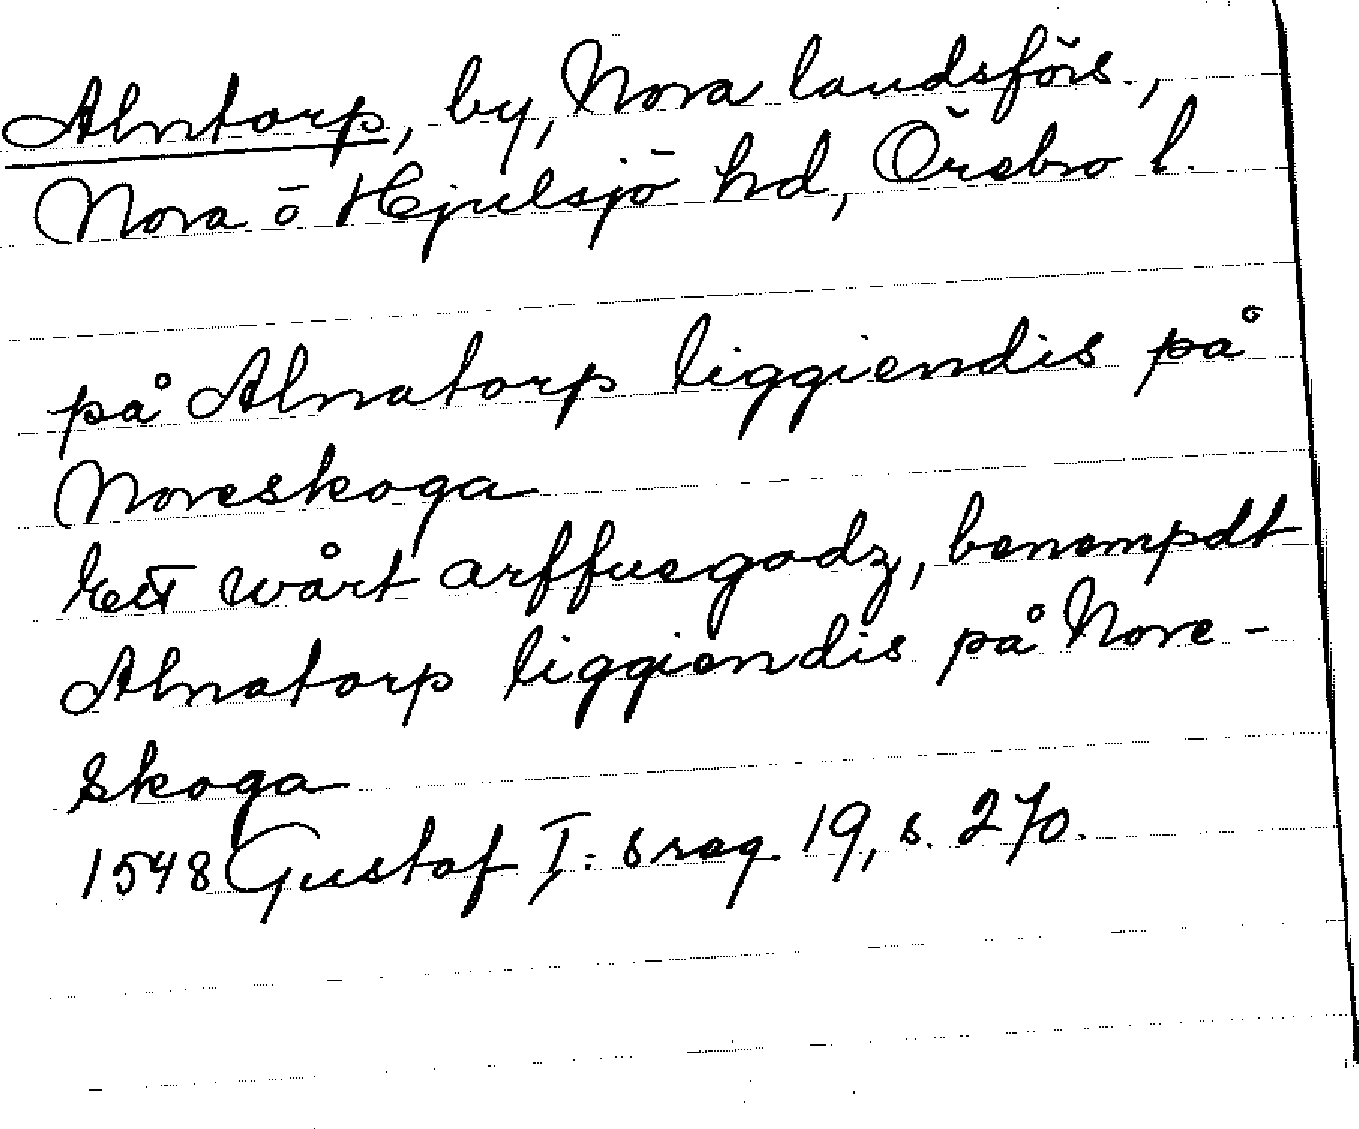 Alntorp, by, Nora landsförs.,
Nora o Hjulsjö hd, Örebro l.
på Alnatorp liggiendis på
Noreskoga
Ett wårt arffuegodz, benempdt
Alnatorp liggiendis på Nore-
skoga
1548 Gustaf I:s reg 19, s. 270.